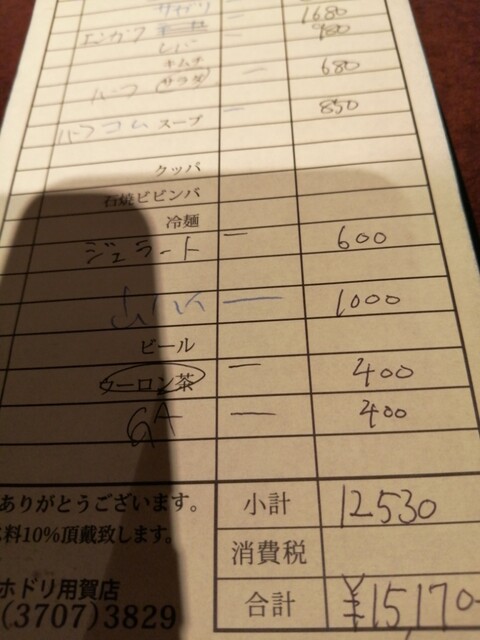 サガリ 一 1680
エンガワ 980
レバー
キムチ
ハーフ サラダ 一 680
ハーフコム スープ 一 850
クッパ
石焼ビビンバ
冷麺
ジェラート 一 600
一 1000
ビール
ウーロン茶 一 400
GA 一 400
ありがとうございます。 小計 12530
料10%頂戴致します。 消費税
ホドリ用賀店
(3707)3829 合計 ¥15,170-